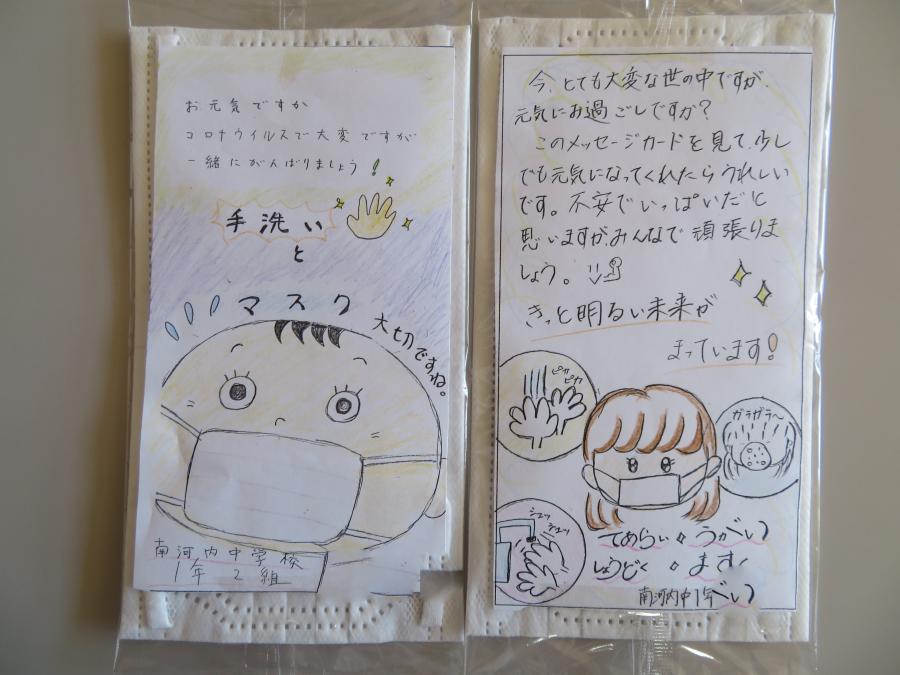 お元気ですか
コロナウイルスで大変ですが
一緒にがんばりましょう!
手洗い
と
マスク
大切ですね。
南河内中学校
1年2組
今、とても大変な世の中ですが、
元気にお過ごしですか?
このメッセージカードを見て、少し
でも元気になってくれたらうれしい
です。不安でいっぱいだと
思いますが、みんなで頑張りま
しょう。
きっと明るい未来が
まっています!
ピカピカ
ガラガラ〜
シュッシュッ
てあらい うがい
しょうどく ます
南河内中1年